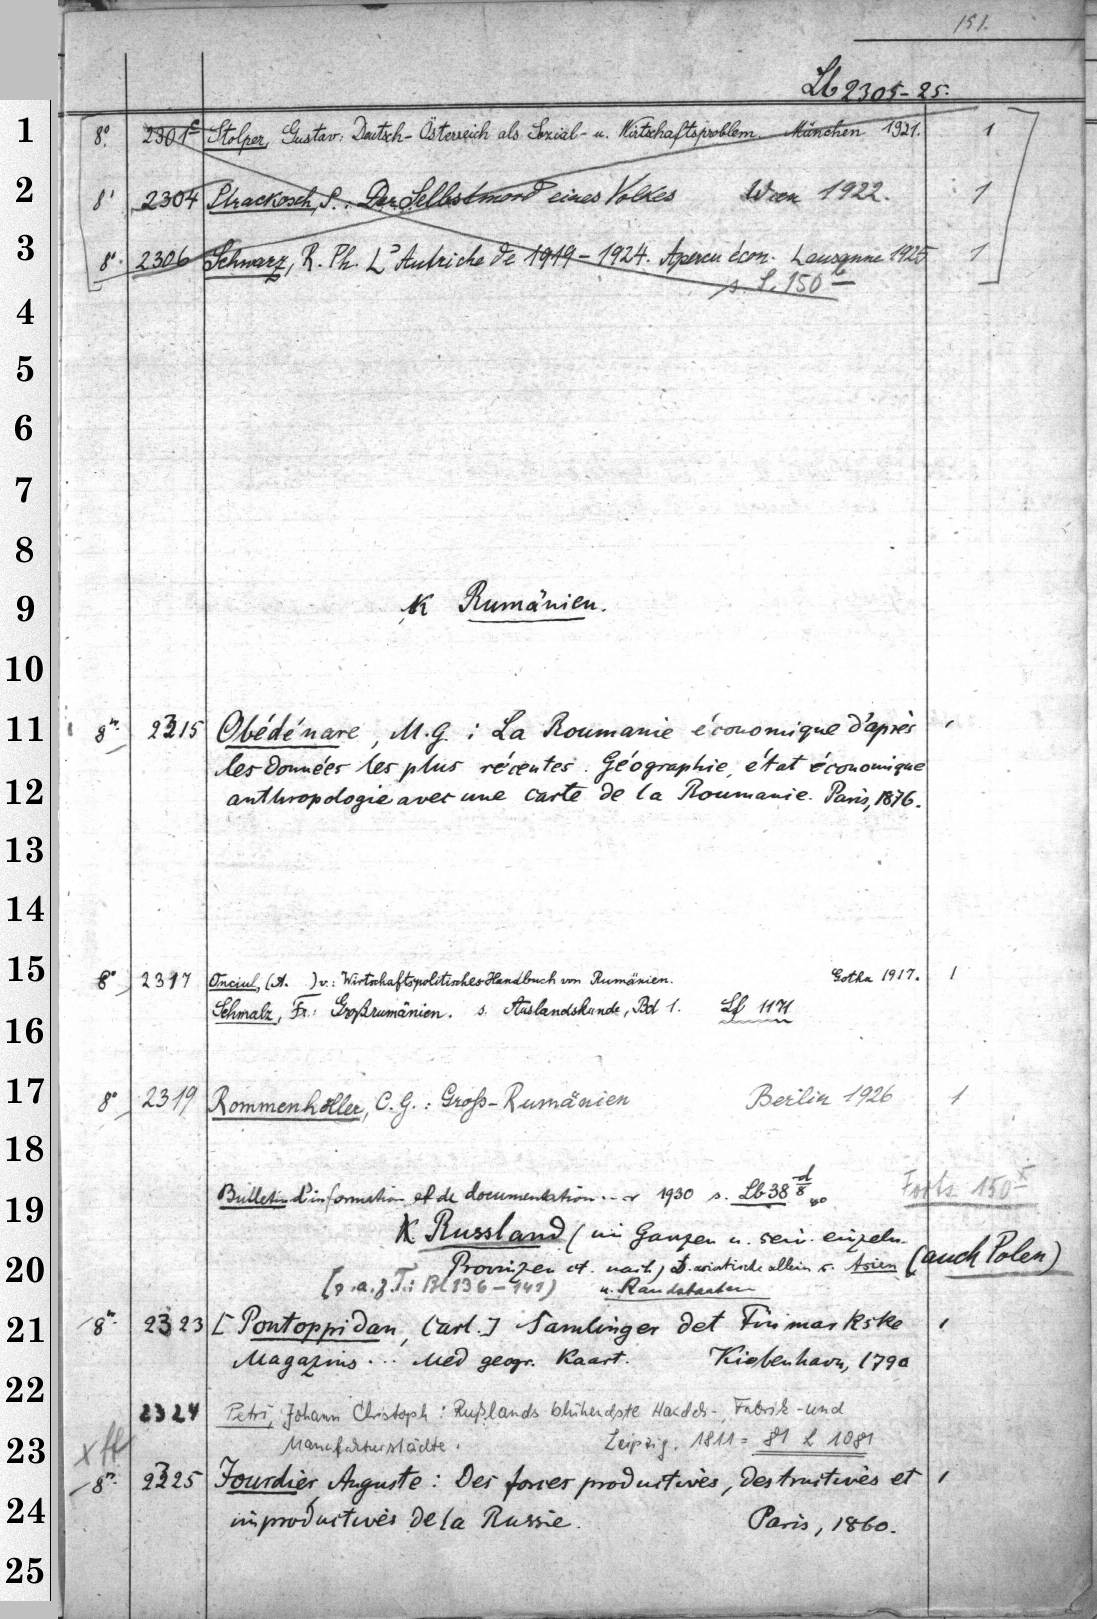 151.
Lb 2305-25.
1 8° 2301c Stolper, Gustav: Deutsch-Österreich als Sozial- u. Wirtschaftsproblem. München 1921. 1
2 8° 2304 Strackosch, S.: Der Selbstmord eines Volkes Wien 1922. 1
3 8° 2306 Schwarz, R. Ph. L'Autriche de 1919-1924. Apercu écon. Lausanne 1925 1
s. S. 150 b
4
5
6
7
8
9 K Rumänien.
10
11 8° 2315 Obédénare, M.G.: La Roumanie économique d'après
les données les plus récentes. Géographie, état économique
12 anthropologie avec une carte de la Roumanie. Paris, 1876.
13
14
15 8° 2317 Onciul, (A. ) v.: Wirtschaftspolitisches Handbuch von Rumänien. Gotha 1917. 1
16 Schmalz, Fr.: Großrumänien. s. Auslandskunde, Bd 1. Lf 1171
17 8° 2319 Rommenhöller, C.G.: Gross-Rumänien Berlin 1926 1
18
19 Bulletin d'information et de documentation. 1930 s. Lb 38 d/8 Forts 150
K Russland (im Ganzen u. sein. einzeln.
20 Provinzen etc. asiatische allein s. Asien (auch Polen)
u. Randstaaten
21 8° 2323 [Pontoppidan, Carl.] Samlinger det Finmarkske
Magazins ... Med geogr. Kaart. Kiøbenhavn, 1790
22 2324 Petri, Johann Christoph: Rußlands blühendste Handels-, Fabrik- und
23 Manufakturstädte. Leipzig. 1811 = 81 L 1081
8° 2325 Jourdier, Auguste: Des forces productives, destructives et
24 improductives de la Russie. Paris, 1860.
25